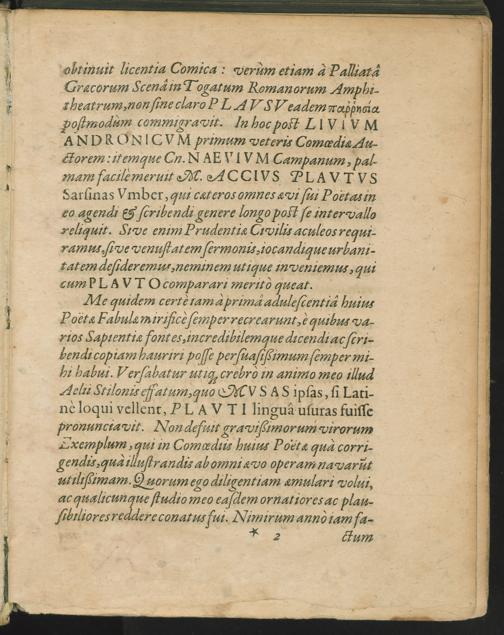 obtinuit licentia Comica : verùm etiam à Palliatâ
Græcorum Scenâ in Togatum Romanorum Amphi-
theatrum, non sine claro PLAVSV eadem παῤῥησία
postmodùm commigravit. In hoc post LIVIVM
ANDRONICVM primum veteris Comœdiæ Au-
ctorem: itemque Cn. NAEVIVM Campanum, pal-
mam facilè meruit M. ACCIVS PLAVTVS
Sarsinas Vmber, qui cæteros omnes ævi sui Poëtas in
eo agendi & scribendi genere longo post se intervallo
reliquit. Sive enim Prudentiæ Civilis aculeos requi-
ramus, sive venustatem sermonis, iocandique urbani-
tatem desideremus, neminem utique inveniemus, qui
cum PLAVTO comparari meritò queat.
Me quidem certè iam à primâ adulescentiâ huius
Poëtæ Fabulæ mirificè semper recrearunt, è quibus va-
rios Sapientiæ fontes, incredibilemque dicendi ac scri-
bendi copiam hauriri posse persuasissimum semper mi-
hi habui. Versabatur utiq; crebrò in animo meo illud
Aelii Stilonis effatum, quo MVSAS ipsas, si Lati-
nè loqui vellent, PLAVTI linguâ usuras fuisse
pronunciavit. Non defuit gravissimorum virorum
Exemplum, qui in Comœdiis huius Poëtæ quà corri-
gendis, quà illustrandis ab omni ævo operam navarūt
utilissimam. Quorum ego diligentiam æmulari volui,
ac qualicunque studio meo easdem ornatiores ac plau-
sibiliores reddere conatus fui. Nimirum annò iam fa-
* 2 ctum